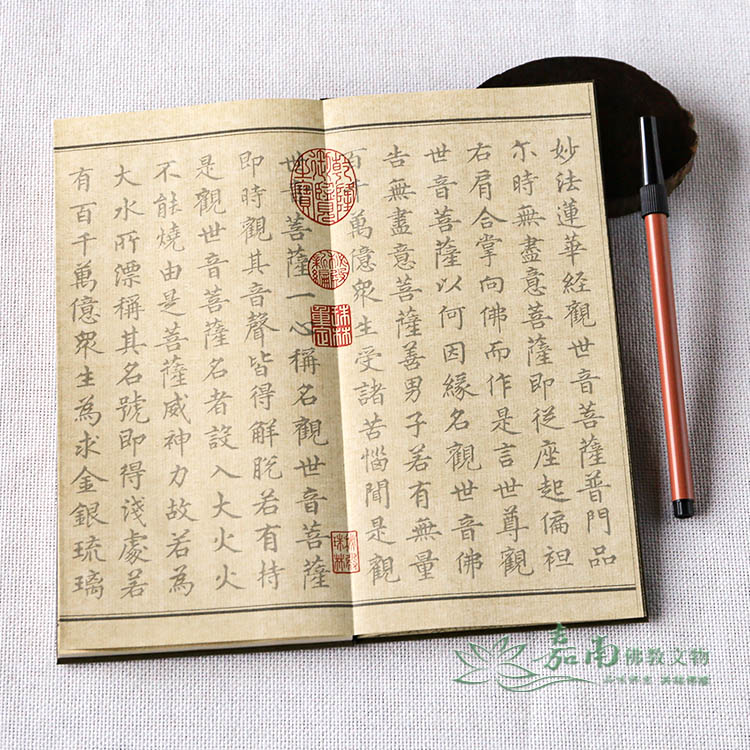 妙法蓮華経觀世音菩薩普門品
尒時無盡意菩薩即従座起偏袒
右肩合掌向佛而作是言世尊觀
世音菩薩以何因緣名觀世音佛
告無盡意菩薩善男子若有無量
百千萬億眾生受諸苦惱聞是觀
世音菩薩一心稱名觀世音菩薩
即時觀其音聲皆得解脫若有持
是觀世音菩薩名者設入大火火
不能燒由是菩薩威神力故若為
大水所漂稱其名號即得淺處若
有百千萬億眾生為求金銀琉璃
乾隆御覽之寶
秘殿新編
珠林重定
秘殿珠林
嘉南佛教文物